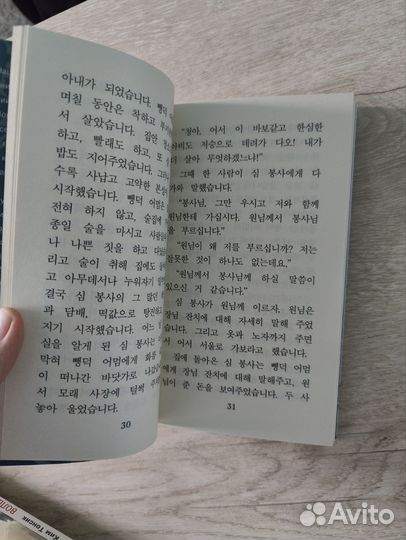 아내가 되었습니다. 뺑덕
며칠 동안은 착하고
서 살았습니다. 집안
하고, 빨래도 하고, 또
밥도 지어주었습니다.
수록 사납고 고약한 본성
시작했습니다. 뺑덕 어멈은
전혀 하지 않고, 술집에
종일 술을 마시고 사람들
나 나쁜 짓을 하고
리고 술이 취해 집에
고 아무데서나 누워자기
결국 심 봉사의 그 많던
과 담배, 떡값으로 탕진
지기 시작했습니다. 어느
실을 알게 된 심 봉사는
막혀 뺑덕 어멈에게 화를
이 떠나간 바닷가로 나
서 모래 사장에 털썩 주
놓아 울었습니다.
30
"청아, 어서 이 바보같고 한심한
아비도 저승으로 데려가 다오! 내가
더 살아 무엇하겠느냐!"
그때 한 사람이 심 봉사에게 다
와 말했습니다.
"봉사님, 그만 우시고 저와 함께
원님한테 가십시다. 원님께서 봉사님
부르십니다."
"원님이 왜 저를 부르십니까? 저는
잘못한 것이 하나도 없는데요."
"원님께서 봉사님께 하실 말씀이
있으신 것 같습니다."
심 봉사가 원님께 이르자, 원님은
장님 잔치에 대해 자세히 말해 주었
습니다. 그리고 옷과 노자까지 주면
서 어서 서울로 가보라고 했습니다.
집에 돌아온 심 봉사는 뺑덕 어멈
에게 장님 잔치에 대해 말해주고, 원
님이 준 돈을 보여주었습니다. 두 사
31
Ким Тонсик
Avito